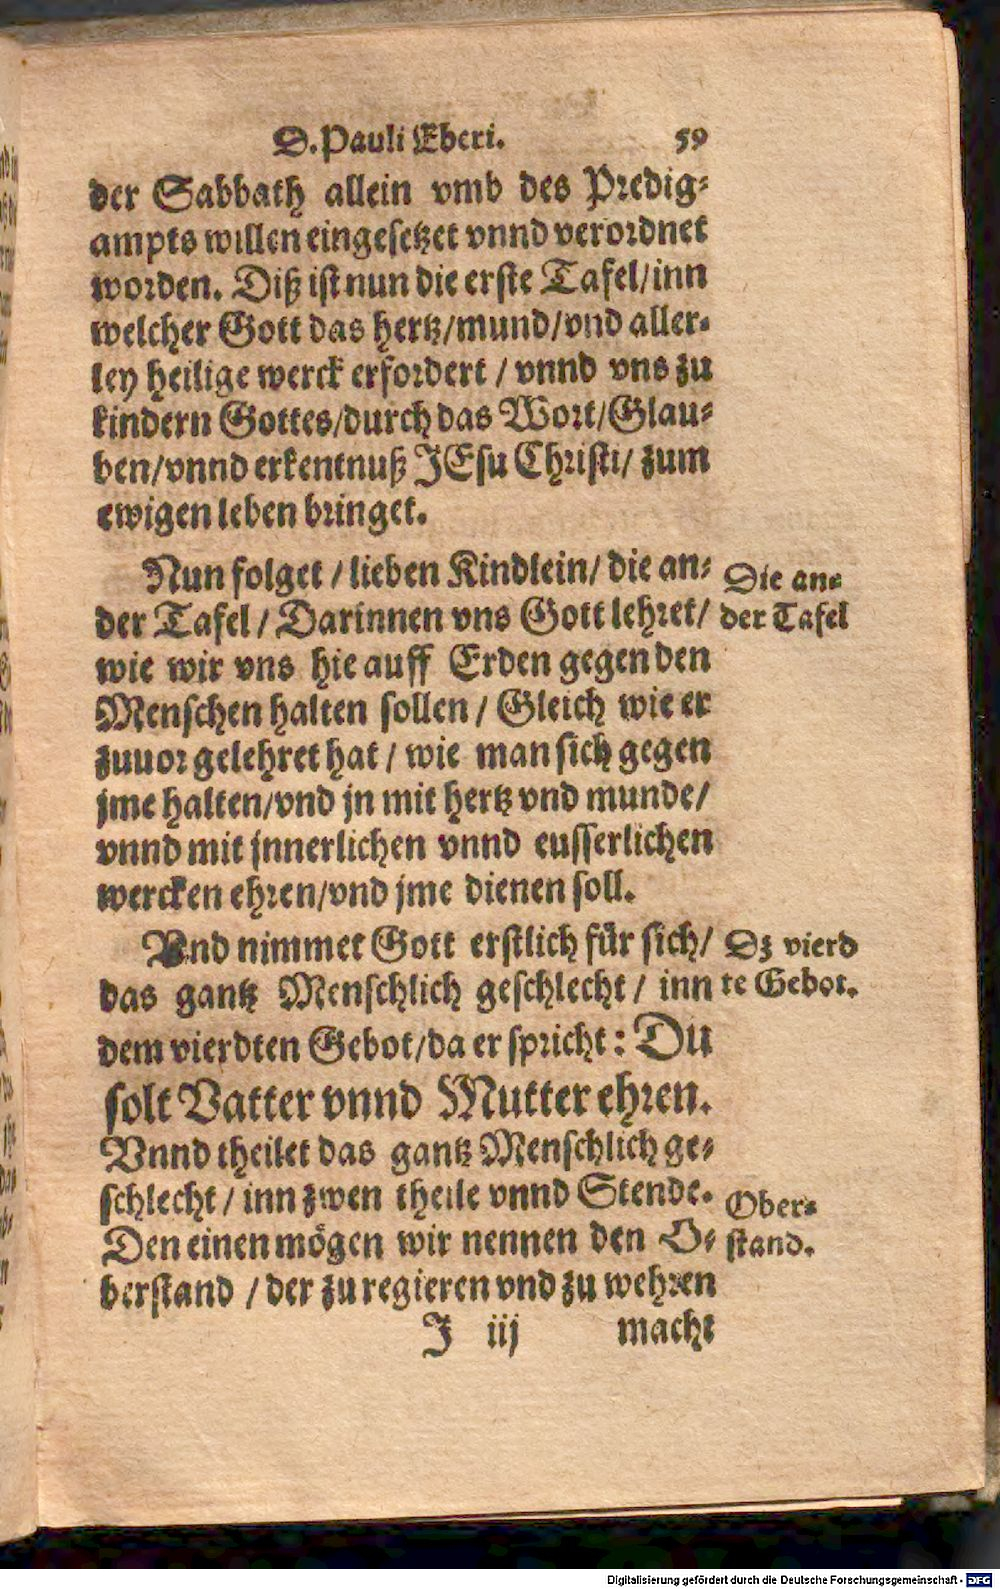 D. Pauli Eberi. 59
der Sabbath allein vmb des Predig-
ampts willen eingesetzet vnnd verordnet
worden. Diß ist nun die erste Tafel/inn
welcher Gott das hertz/mund/vnd aller-
ley heilige werck erfordert / vnnd vns zu
kindern Gottes/durch das Wort/Glau-
ben/vnnd erkentnuß JEsu Christi/ zum
ewigen leben bringet.
Nun folget / lieben Kindlein/ die an-
Die an-
der Tafel / Darinnen vns Gott lehret/
der Tafel
wie wir vns hie auff Erden gegen den
Menschen halten sollen / Gleich wie er
zuuor gelehret hat / wie man sich gegen
jme halten/vnd jn mit hertz vnd munde/
vnnd mit jnnerlichen vnnd eusserlichen
wercken ehren/vnd jme dienen soll.
Vnd nimmet Gott erstlich für sich/
Dz vierd
das gantz Menschlich geschlecht / inn
te Gebot.
dem vierdten Gebot/da er spricht: Du
solt Vatter vnnd Mutter ehren.
Vnnd theilet das gantz Menschlich ge-
schlecht / inn zwen theile vnnd Stende.
Ober-
Den einen mögen wir nennen den O-
stand.
berstand / der zu regieren vnd zu wehren
J iij macht
Digitalisierung gefördert durch die Deutsche Forschungsgemeinschaft - DFG